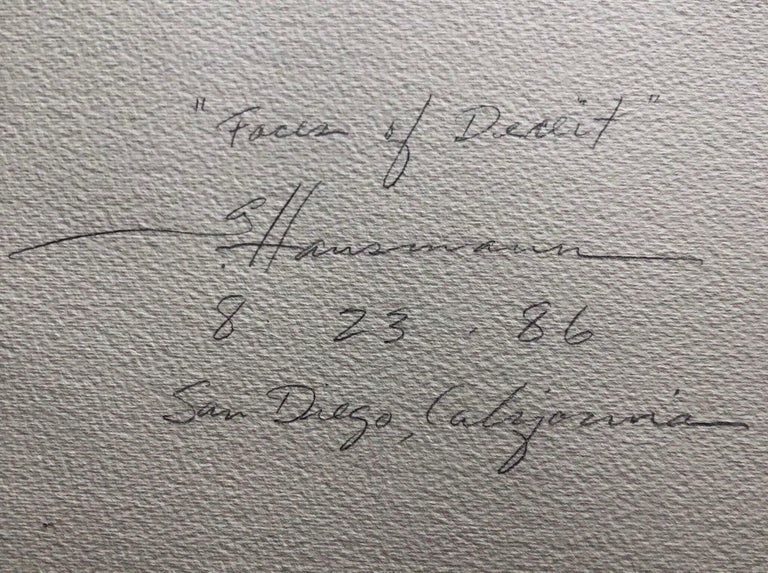 "Faces of Deceit"
G. Hausmann
8 . 23 . 86
San Diego, California